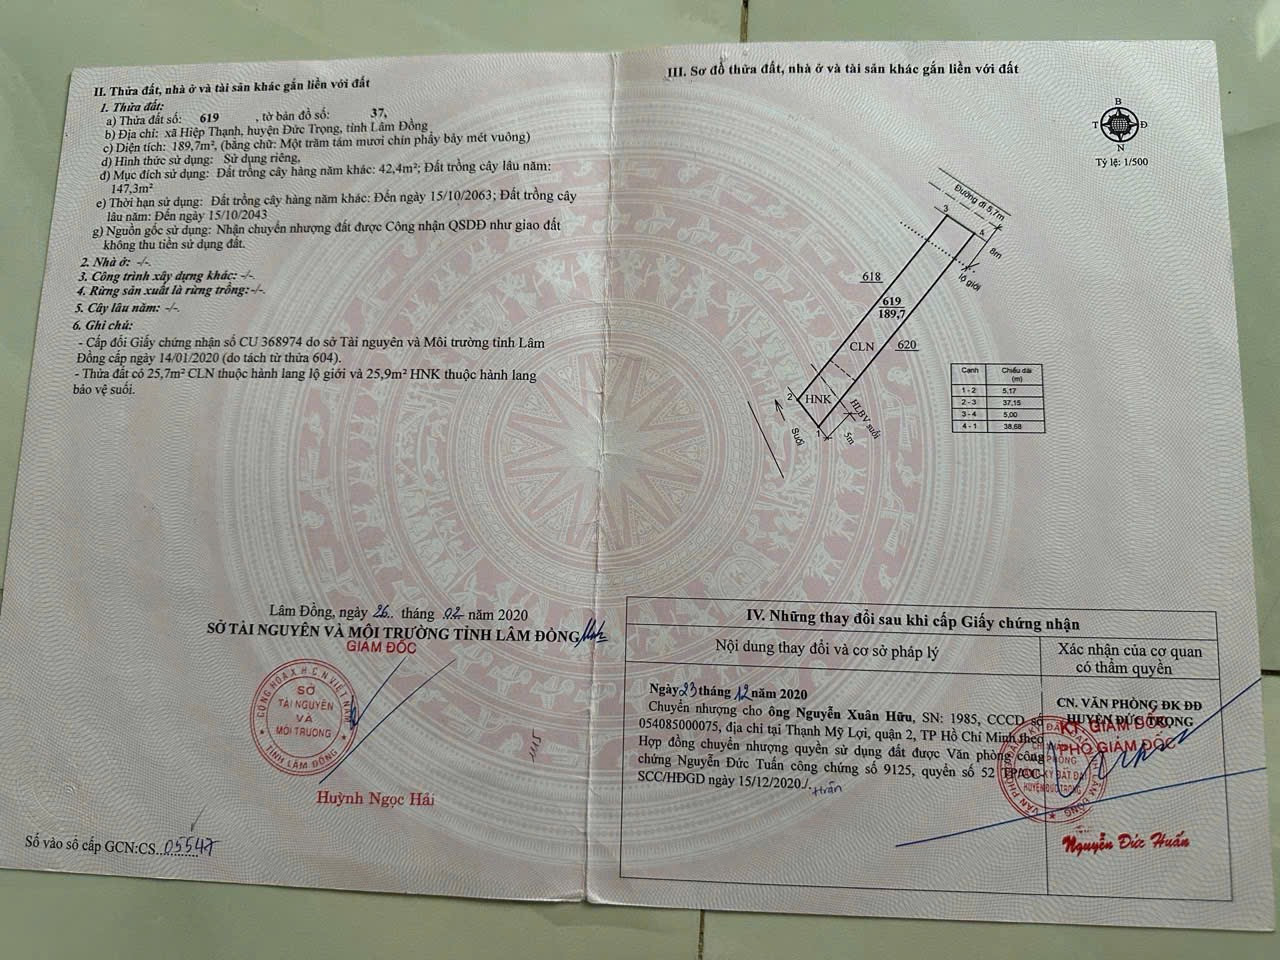 II. Thửa đất, nhà ở và tài sản khác gắn liền với đất
1. Thửa đất:
a) Thửa đất số: 619 , tờ bản đồ số: 37,
b) Địa chỉ: xã Hiệp Thạnh, huyện Đức Trọng, tỉnh Lâm Đồng
c) Diện tích: 189,7m², (bằng chữ: Một trăm tám mươi chín phẩy bảy mét vuông)
d) Hình thức sử dụng: Sử dụng riêng,
đ) Mục đích sử dụng: Đất trồng cây hàng năm khác: 42,4m²; Đất trồng cây lâu năm:
147,3m²
e) Thời hạn sử dụng: Đất trồng cây hàng năm khác: Đến ngày 15/10/2063; Đất trồng cây
lâu năm: Đến ngày 15/10/2043
g) Nguồn gốc sử dụng: Nhận chuyển nhượng đất được Công nhận QSDĐ như giao đất
không thu tiền sử dụng đất.
2. Nhà ở: -/-.
3. Công trình xây dựng khác: -/-.
4. Rừng sản xuất là rừng trồng: -/-.
5. Cây lâu năm: -/-.
6. Ghi chú:
- Cấp đổi Giấy chứng nhận số CU 368974 do sở Tài nguyên và Môi trường tỉnh Lâm
Đồng cấp ngày 14/01/2020 (do tách từ thửa 604).
- Thửa đất có 25,7m² CLN thuộc hành lang lộ giới và 25,9m² HNK thuộc hành lang
bảo vệ suối.
Lâm Đồng, ngày 26 tháng 02 năm 2020
SỞ TÀI NGUYÊN VÀ MÔI TRƯỜNG TỈNH LÂM ĐỒNG
GIÁM ĐỐC
CỘNG HÒA X.H.C.N VIỆT NAM
SỞ
TÀI NGUYÊN
VÀ
MÔI TRƯỜNG
TỈNH LÂM ĐỒNG
Huỳnh Ngọc Hải
Số vào sổ cấp GCN:CS 05547
III. Sơ đồ thửa đất, nhà ở và tài sản khác gắn liền với đất
B
T Đ
N
Tỷ lệ: 1/500
Đường đi 5,7m
3
4
8m
lộ giới
618
619
189,7
620
CLN
HNK
HLBV suối
2
1
5m
Suối
Cạnh Chiều dài (m)
1 - 2 5,17
2 - 3 37,15
3 - 4 5,00
4 - 1 38,68
IV. Những thay đổi sau khi cấp Giấy chứng nhận
Nội dung thay đổi và cơ sở pháp lý
Xác nhận của cơ quan
có thẩm quyền
Ngày 23 tháng 12 năm 2020
Chuyển nhượng cho ông Nguyễn Xuân Hữu, SN: 1985, CCCD số
054085000075, địa chỉ tại Thạnh Mỹ Lợi, quận 2, TP Hồ Chí Minh theo
Hợp đồng chuyển nhượng quyền sử dụng đất được Văn phòng công
chứng Nguyễn Đức Tuấn công chứng số 9125, quyển số 52 TP/CC-
SCC/HĐGD ngày 15/12/2020./.
CN. VĂN PHÒNG ĐK ĐĐ
HUYỆN ĐỨC TRỌNG
KT. GIÁM ĐỐC
PHÓ GIÁM ĐỐC
Nguyễn Đức Huấn